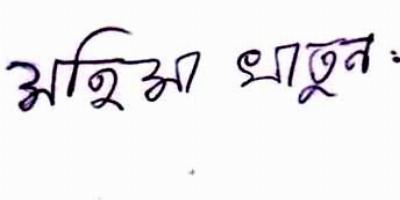 অহিআ খাতুন